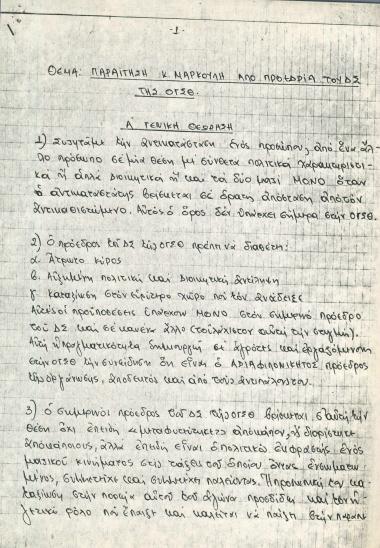 -1-
ΘΕΜΑ: ΠΑΡΑΙΤΗΣΗ Κ. ΜΑΡΚΟΥΛΗ ΑΠΟ ΠΡΟΕΔΡΙΑ ΤΟΥ ΔΣ
ΤΗΣ ΟΓΣΘ.
Α ΓΕΝΙΚΗ ΘΕΩΡΗΣΗ
1) Συζητάμε την αντικατάσταση ενός προσώπου, από ένα άλ-
λο πρόσωπο σε μια θέση με σύνθετα πολιτικά χαρακτηριστι-
κά ή απλά διοικητικά ή και τα δύο μαζί ΜΟΝΟ όταν
ο αντικαταστάτης βρίσκεται σε ορατή απόσταση από τον
αντικαθιστάμενο. Αυτός ο όρος δεν υπάρχει σήμερα στην ΟΓΣΘ.
2) Ο πρόεδρος του ΔΣ της ΟΓΣΘ πρέπει να διαθέτει:
α. Άτρωτο κύρος
β. Αυξημένη πολιτική και διοικητική αντίληψη
γ. Καταξίωση στον ευρύτερο χώρο που τον ανάδειξε
Αυτές οι προϋποθέσεις υπάρχουν ΜΟΝΟ στον σημερινό πρόεδρο
του ΔΣ και σε κανένα άλλο (τουλάχιστον αυτή την στιγμή).
Αυτή η πραγματικότητα δημιουργεί σε αγρότες και εργαζόμενους
στην ΟΓΣΘ την συνείδηση ότι είναι ο ΑΔΙΑΦΙΛΟΝΙΚΗΤΟΣ πρόεδρος
της οργάνωσης, αποδεκτός και από τους αντιπάλους του.
3) Ο σημερινός πρόεδρος του ΔΣ της ΟΓΣΘ βρίσκεται σ' αυτή την
θέση όχι επειδή «μεταφυτεύτηκε» από κάπου, ή διορίστηκε
από κάποιους, αλλά επειδή είναι ο πολιτικός εκφραστής ενός
μαζικού κινήματος στις τάξεις του οποίου όντας ενσωματω-
μένος, συμμετείχε και συμμετέχει παλεύοντας. Η προσωπική του κα-
ταξίωση στην πορεία αυτού του αγώνα προσδίδει και τον η-
γετικό ρόλο που έπαιξε και καλείται να παίξει στην παραπέ